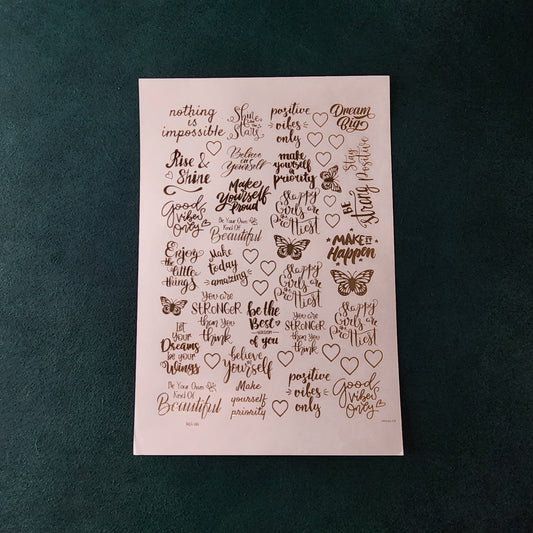 nothing
is
impossible
Shine
like
the
Stars
positive
vibes
only
Dream
Big
Rise &
Shine
Believe
in
Yourself
make
yourself
a
priority
Stay
Positive
BE
Strong
Good
Vibes
Only
Make
Yourself
Proud
Happy
Girls are
the
Prettiest
Be Your Own
Kind Of
Beautiful
MAKE IT
Happen
Enjoy
the
little
things
Make
today
amazing
Happy
Girls are
the
Prettiest
You are
STRONGER
than you
think
be the
Best
VERSION
of you
You are
STRONGER
than you
think
Happy
Girls are
the
Prettiest
Let
Your
Dreams
be your
Wings
believe
in
Yourself
Be Your Own
Kind Of
Beautiful
Make
yourself
priority
positive
vibes
only
Good
Vibes
Only